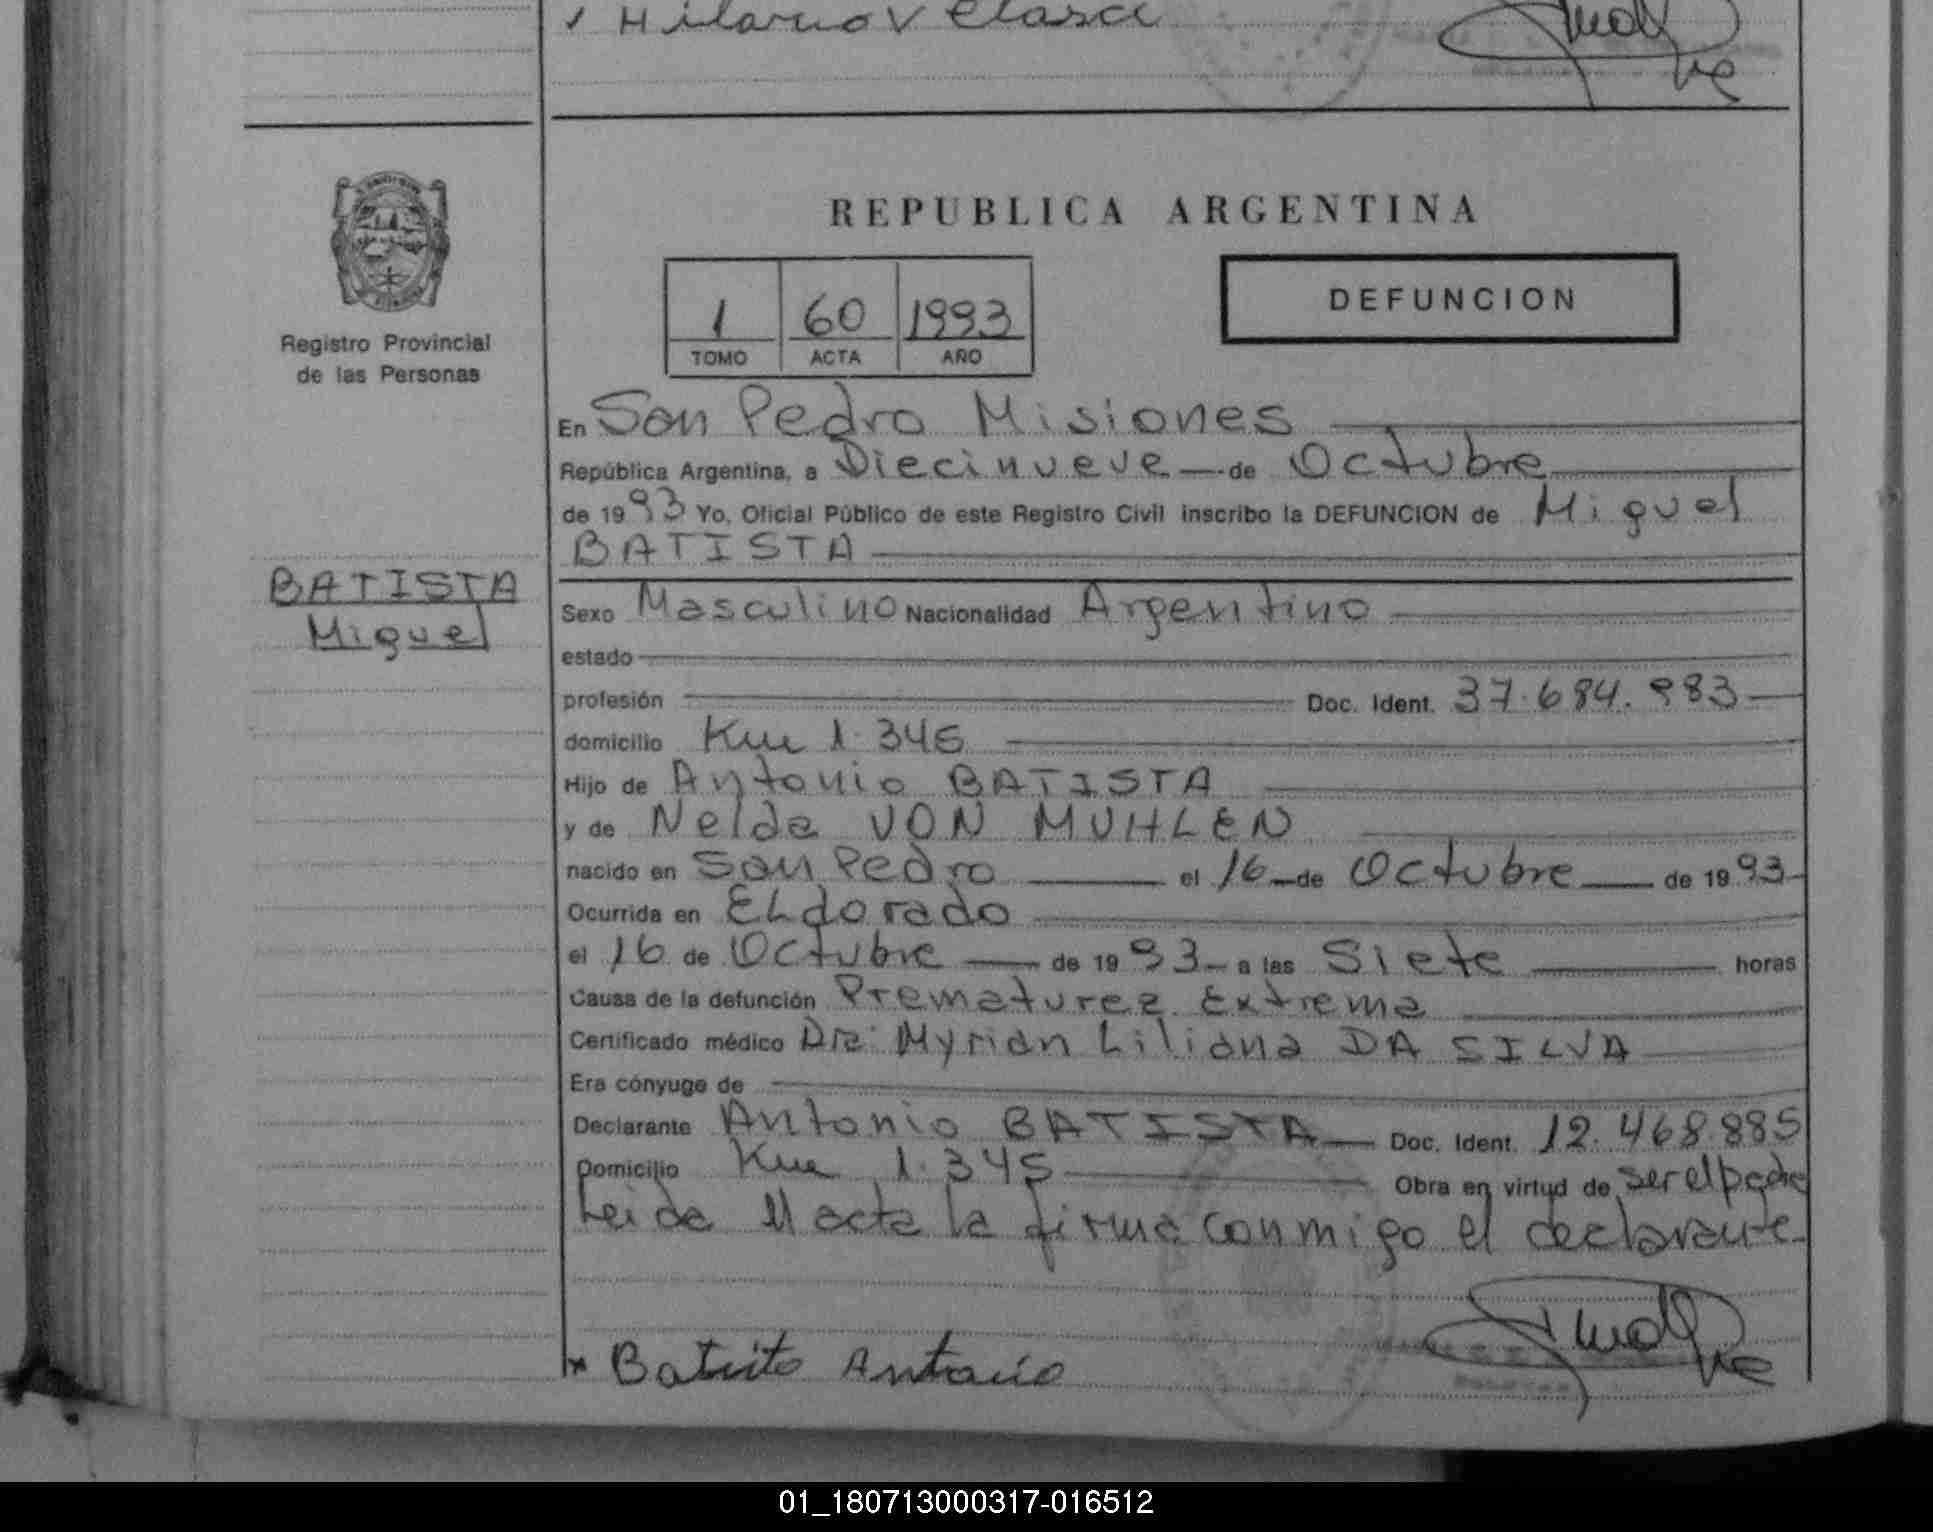 Hilario Velasci
REPUBLICA ARGENTINA
1 60 1993
TOMO ACTA AÑO
DEFUNCION
Registro Provincial
de las Personas
En San Pedro Misiones
República Argentina, a Diecinueve de Octubre
de 1993 Yo, Oficial Público de este Registro Civil inscribo la DEFUNCION de Miguel
BATISTA
BATISTA
Miguel
Sexo Masculino Nacionalidad Argentino
estado
profesión Doc. Ident. 37.684.983
domicilio Km 1.345
Hijo de Antonio BATISTA
y de Nelda VON MUHLEN
nacido en San Pedro el 16 de Octubre de 1993
Ocurrida en ELdorado
el 16 de Octubre de 1993 a las Siete horas
Causa de la defunción Prematurez Extrema
Certificado médico Dra: Myrian Liliana DA SILVA
Era cónyuge de
Declarante Antonio BATISTA Doc. Ident. 12.468.885
Domicilio Km 1.345 Obra en virtud de ser el padre
Leida el acta la firma conmigo el declarante
Batista Antonio
01_180713000317-016512